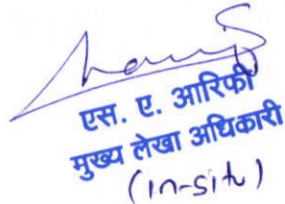 एस. ए. आरिफी
मुख्य लेखा अधिकारी
(in-situ)